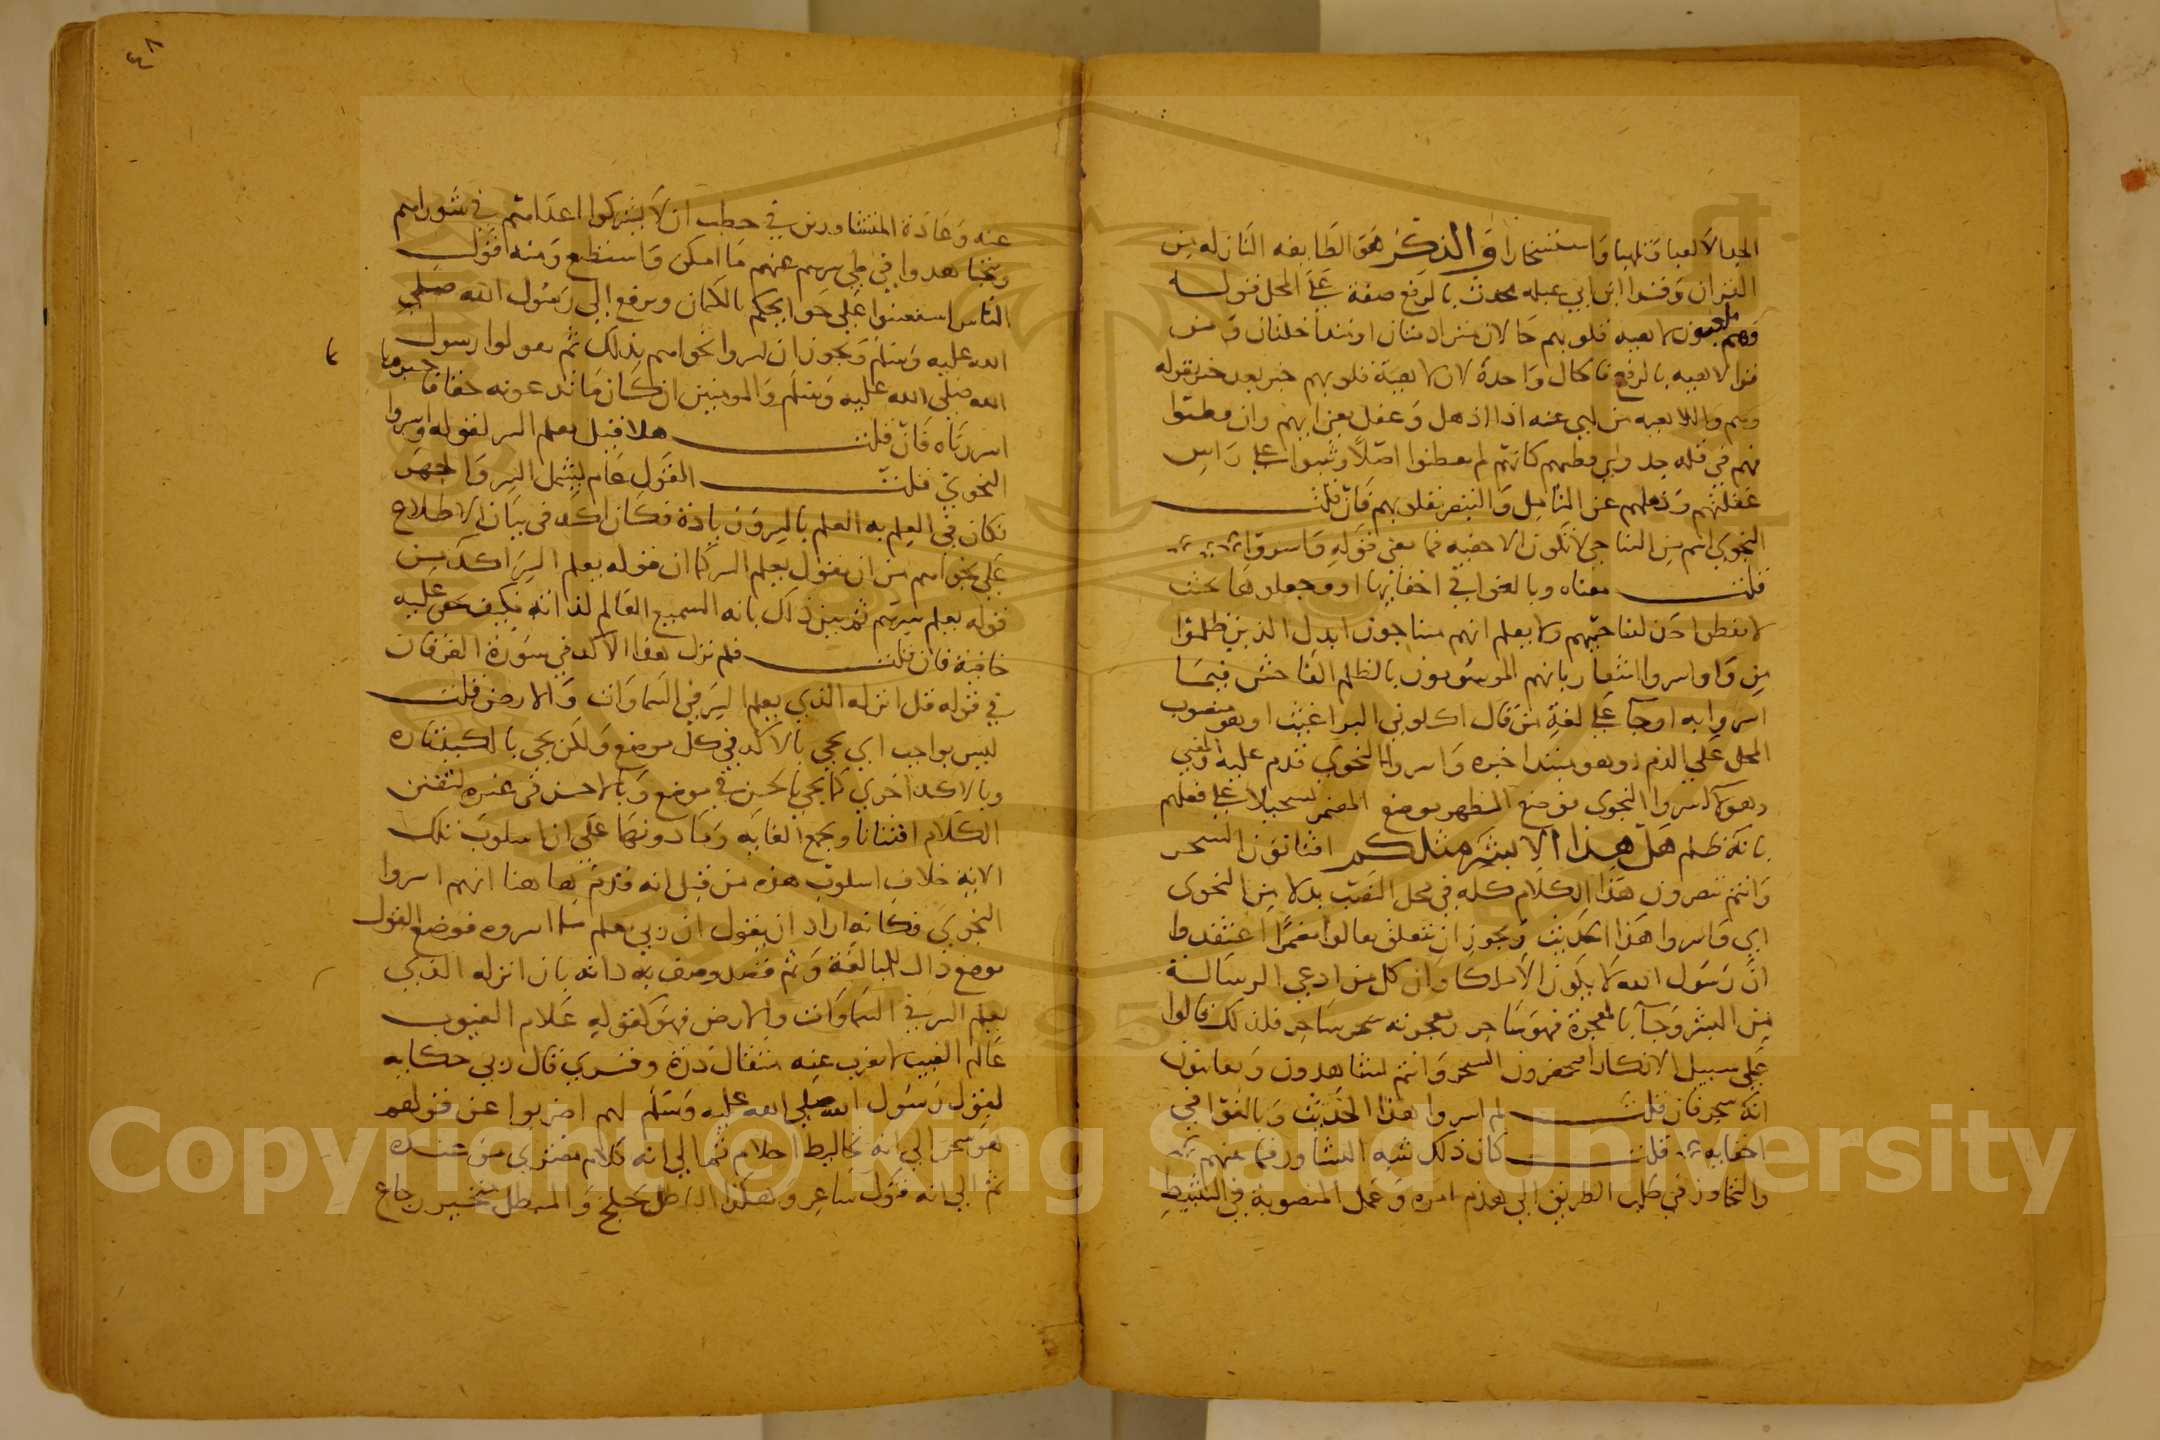 الجد الا لعبا وتلهيا واستسخارا والذكر هو الطايفه النازله من
القران وقرا ابن ابي عبله محدث بالرفع صفة على المحل قوله
وهم يلعبون لاهيه قلوبهم حالان مترادفتان او متداخلتان ومن
قرا لاهيه بالرفع فالحال واحدة لان لاهية قلوبهم خبر بعد خبر لقوله
وهم واللاهيه من لهي عنه اذا ذهل وغفل يعني انهم وان فطنوا
فهم في قله جدوي فطنهم كانهم لم يفطنوا اصلا وثبتوا على راس
غفلتهم وذهلهم عن التامل والتبصر بقلوبهم فان قلت
النجوي اسم من التناجي لا تكون الا خفيه فما معنى قوله واسروا
قلت معناه وبالغوا في اخفايها او وجعلوها بحيث
لا يفطن احد لتناجيهم ولا يعلم انهم متناجون ابدل الذين ظلموا
من واو اسروا اشعارا بانهم الموسومون بالظلم الفاحش فيما
اسروا به او جآ على لغة من قال اكلوني البراغيث او هو منصوب
المحل على الذم او هو مبتدا خبره واسروا النجوي قدم عليه والمعني
وهولآ اسروا النجوى فوضع المظهر موضع المضمر تسجيلا على فعلهم
بانه ظلم هل هذا الا بشر مثلكم افتاتون السحر
وانتم تبصرون هذا الكلام كله في محل النصب بدلا من النجوى
اي واسروا هذا الحديث ويجوز ان يتعلق بقالوا مضمرا اعتقدوا
ان رسول الله لا يكون الا ملكا وان كل من ادعي الرسالة
من البشر وجآ بالمعجزة فهو ساحر ومعجزته سحر ساحر فلذلك قالوا
على سبيل الانكار افتحضرون السحر وانتم تشاهدون وتعاينون
انه سحر فان قلت لم اسروا هذا الحديث وبالغوا في
اخفايه قلت كان ذلك شبه التشاور فيما بينهم
والتحاور في طلب الطريق الي هدم امره وعمل المنصوبة في التثبيط
٤٨
عنه وعادة المتشاورين في خطب ان لا يشركوا اعداهم في شوراهم
ويتجاهدوا في طي سرهم عنهم ما امكن واستطيع ومنه قول
الناس استعينوا على حوايجكم بالكتمان ويرفع الي رسول الله صلى
الله عليه وسلم ويجوز ان يسروا نجواهم بذلك ثم يقولوا لرسول
الله صلى الله عليه وسلم والمومنين ان كان ما تدعونه حقا فاخبرونا بما
اسررناه فان قلت هلا قيل يعلم السر لقوله واسروا
النجوي قلت القول عام يشمل السر والجهر
فكان في العلم به العلم بالسر وزيادة فكان اكد في بيان الاطلاع
على نجواهم من ان يقول يعلم السر كما ان قوله يعلم السر اكد من
قوله يعلم سرهم ثم بين ذلك بانه السميع العالم لذاته فكيف تخفى عليه
خافية فان قلت فلم ترك هذا الاكد في سورة الفرقان
في قوله قل انزله الذي يعلم السر في السماوات والارض قلت
ليس بواجب ان يجي بالاكد في كل موضع ولكن يجي بالوكيد تاره
وبالاكد اخري كما يجي بالحسن في موضع وبالاحسن في غيره ليفتن
الكلام افتنانا ويجمع الغايه وما دونها على ان اسلوب تلك
الايه خلاف اسلوب هذه من قبل انه قدم هاهنا انهم اسروا
النجوي فكانه اراد ان يقول ان ربي يعلم ما اسروه فوضع القول
موضع ذاك للمبالغة وثم قصد وصف به ذاته بان انزله الذي
يعلم السر في السماوات والارض فهو كقوله علام الغيوب
عالم الغيب لا يعزب عنه مثقال ذرة وقري قال ربي حكايه
لقول رسول الله صلى الله عليه وسلم لهم اضربوا عن قولهم
هو سحر الي انه تخاليط احلام ثم الي انه كلام مفتري من عنده
ثم الي انه قول شاعر وهكذا الباطل لجلج والمبطل متحير رجاع
Copyright © King Saud University